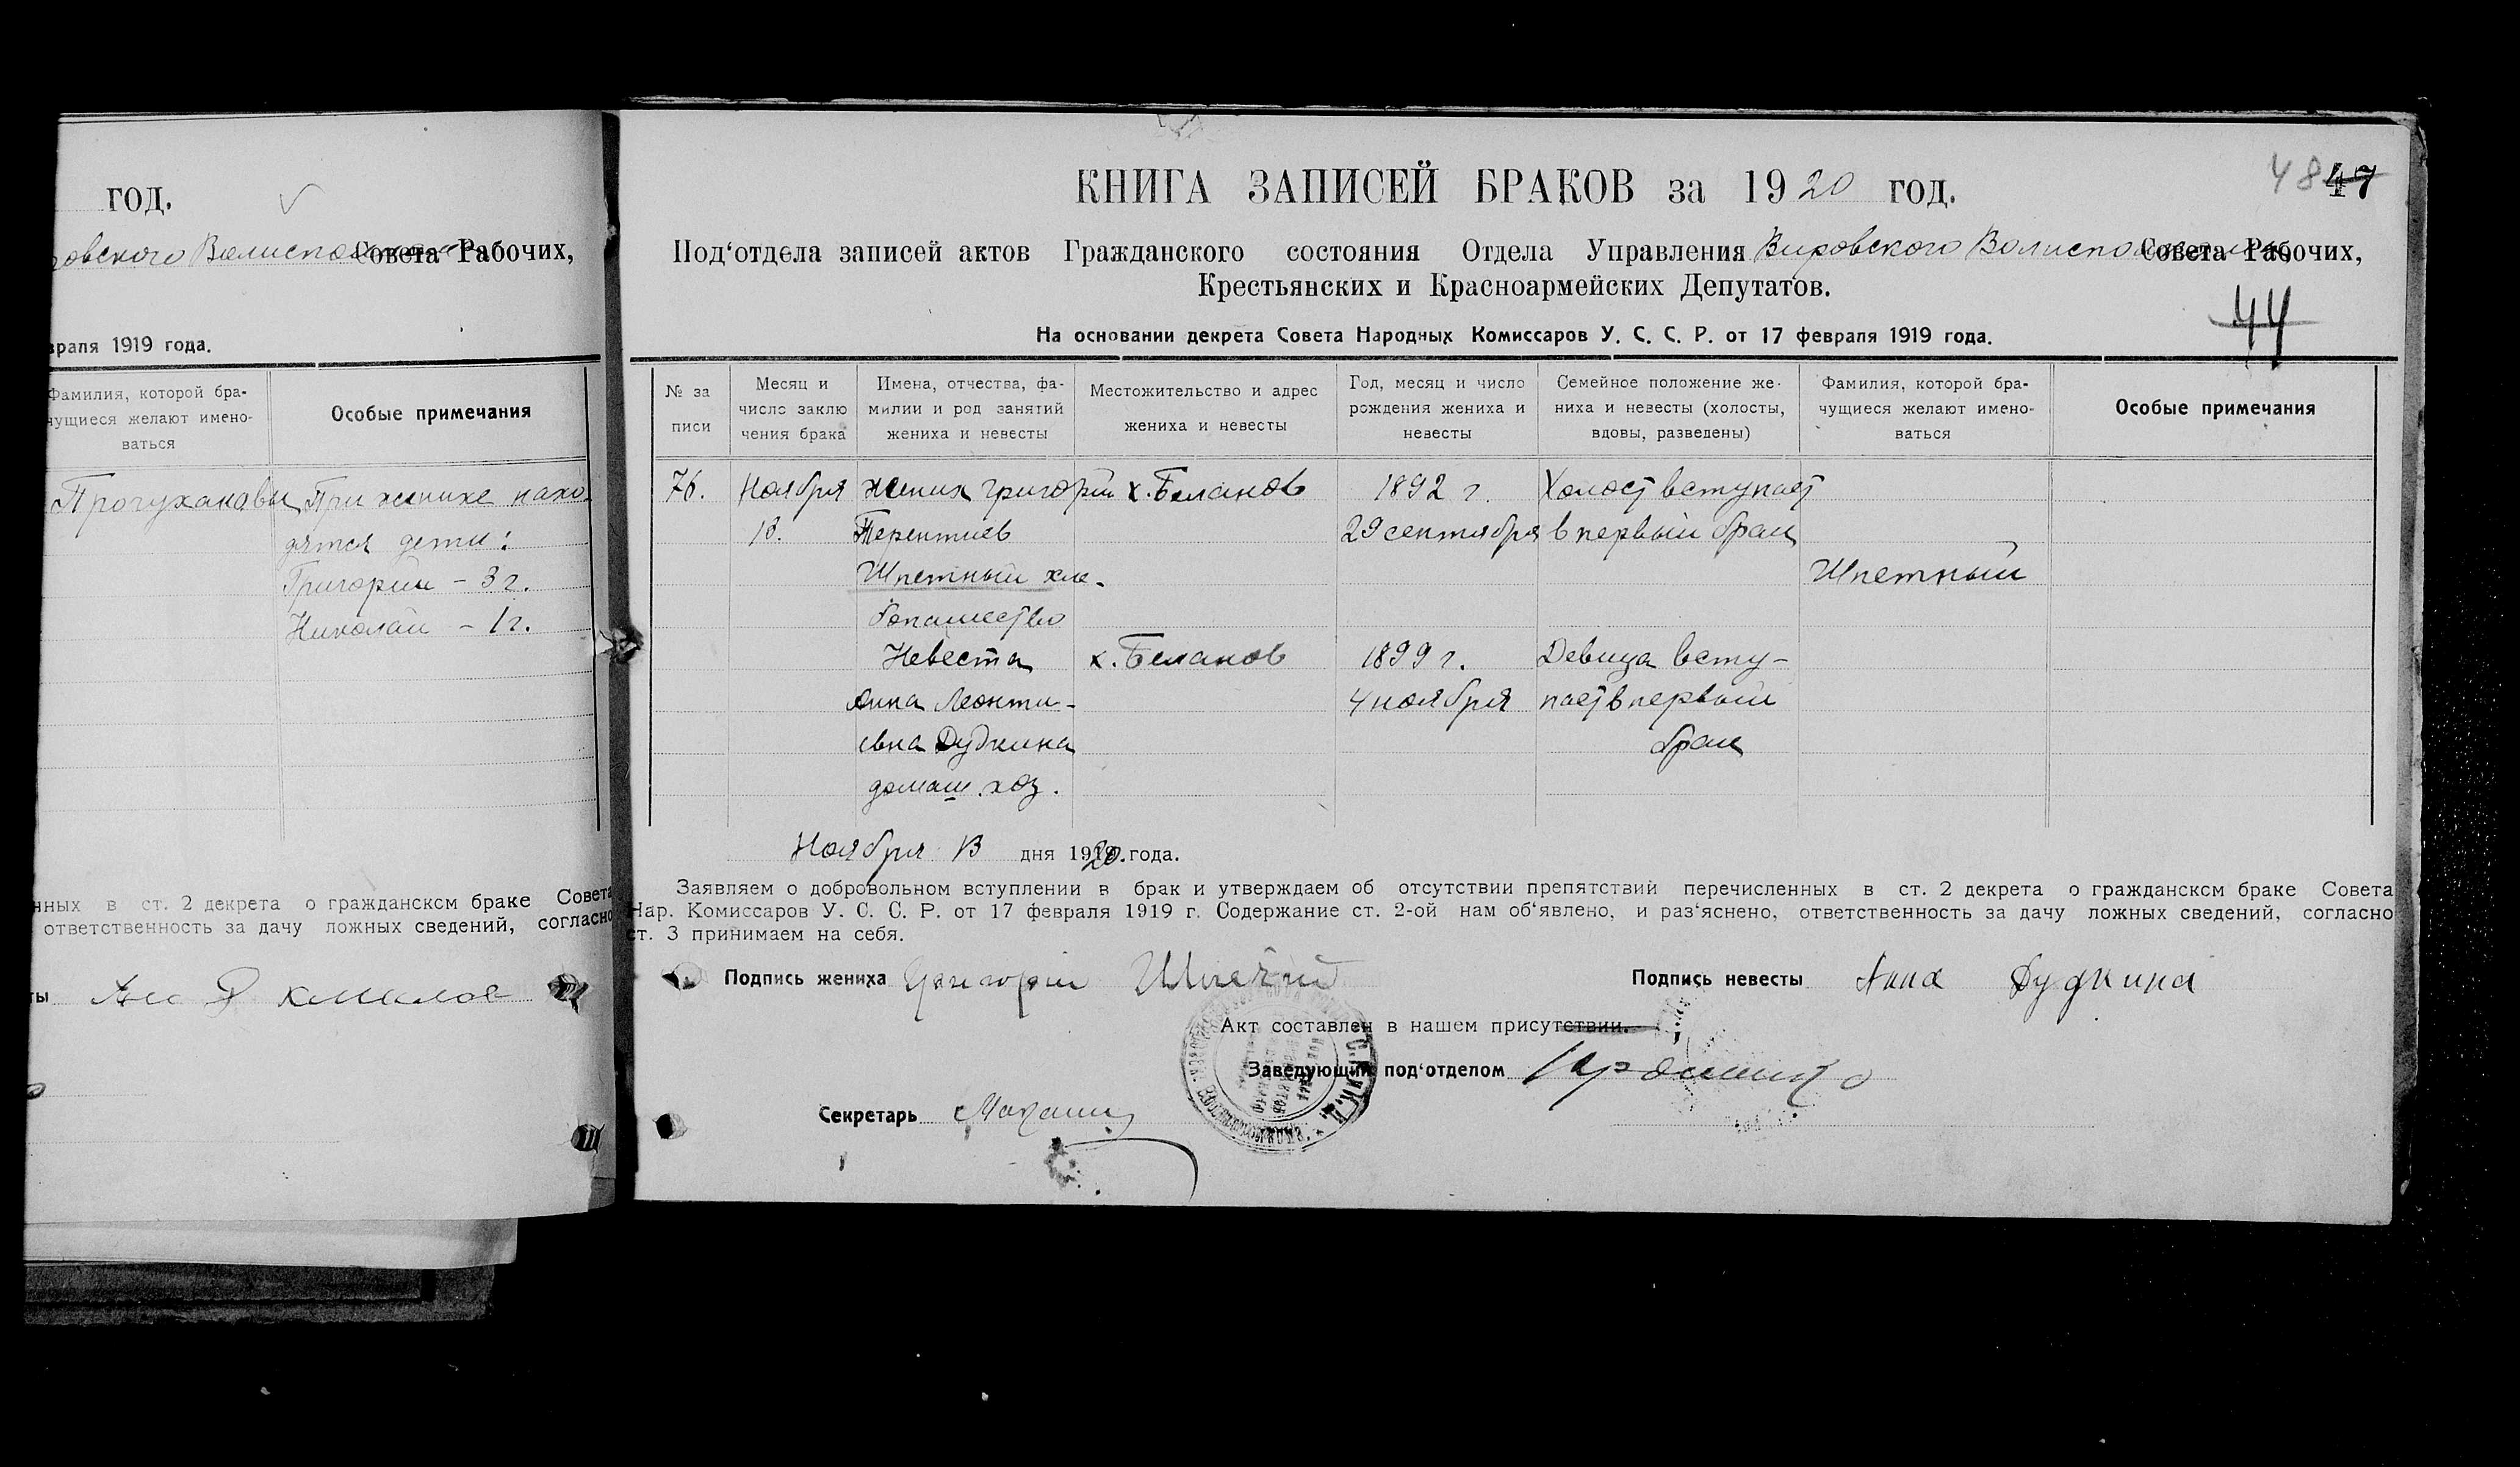 год.
Совета Рабочих,
враля 1919 года.
Фамилия, которой бра-
чущиеся желают имено-
ваться
Особые примечания
При женихе нахо-
дятся дети:
Григорий - 3 г.
Николай - 1 г.
нных в ст. 2 декрета о гражданском браке Совета
ответственность за дачу ложных сведений, согласно
ты
КНИГА ЗАПИСЕЙ БРАКОВ за 1920 год.
48 47
Под‘отдела записей актов Гражданского состояния Отдела Управления Вировского Волисполкома Совета Рабочих,
Крестьянских и Красноармейских Депутатов.
44
На основании декрета Совета Народных Комиссаров У. С. С. Р. от 17 февраля 1919 года.
№ за
писи
Месяц и
число заклю
чения брака
Имена, отчества, фа-
милии и род занятий
жениха и невесты
Местожительство и адрес
жениха и невесты
Год, месяц и число
рождения жениха и
невесты
Семейное положение же-
ниха и невесты (холосты,
вдовы, разведены)
Фамилия, которой бра-
чущиеся желают имено-
ваться
Особые примечания
76. Ноября Жених Григорий х. Беланов 1892 г. Холост вступает
13. Терентиев 29 сентября в первый брак
Шпетный хле- Шпетный
бопашество
Невеста х. Беланов 1899 г. Девица всту-
Анна Леонти- 4 ноября пает в первый
евна Дудкина брак
домаш. хоз.
Ноября 13 дня 1920. года.
Заявляем о добровольном вступлении в брак и утверждаем об отсутствии препятствий перечисленных в ст. 2 декрета о гражданском браке Совета
Нар. Комиссаров У. С. С. Р. от 17 февраля 1919 г. Содержание ст. 2-ой нам об‘явлено, и раз‘яснено, ответственность за дачу ложных сведений, согласно
ст. 3 принимаем на себя.
Подпись жениха Григорий Подпись невесты Анна Дудкина
Акт составлен в нашем присутствии.
Заведующий под‘отделом
Секретарь